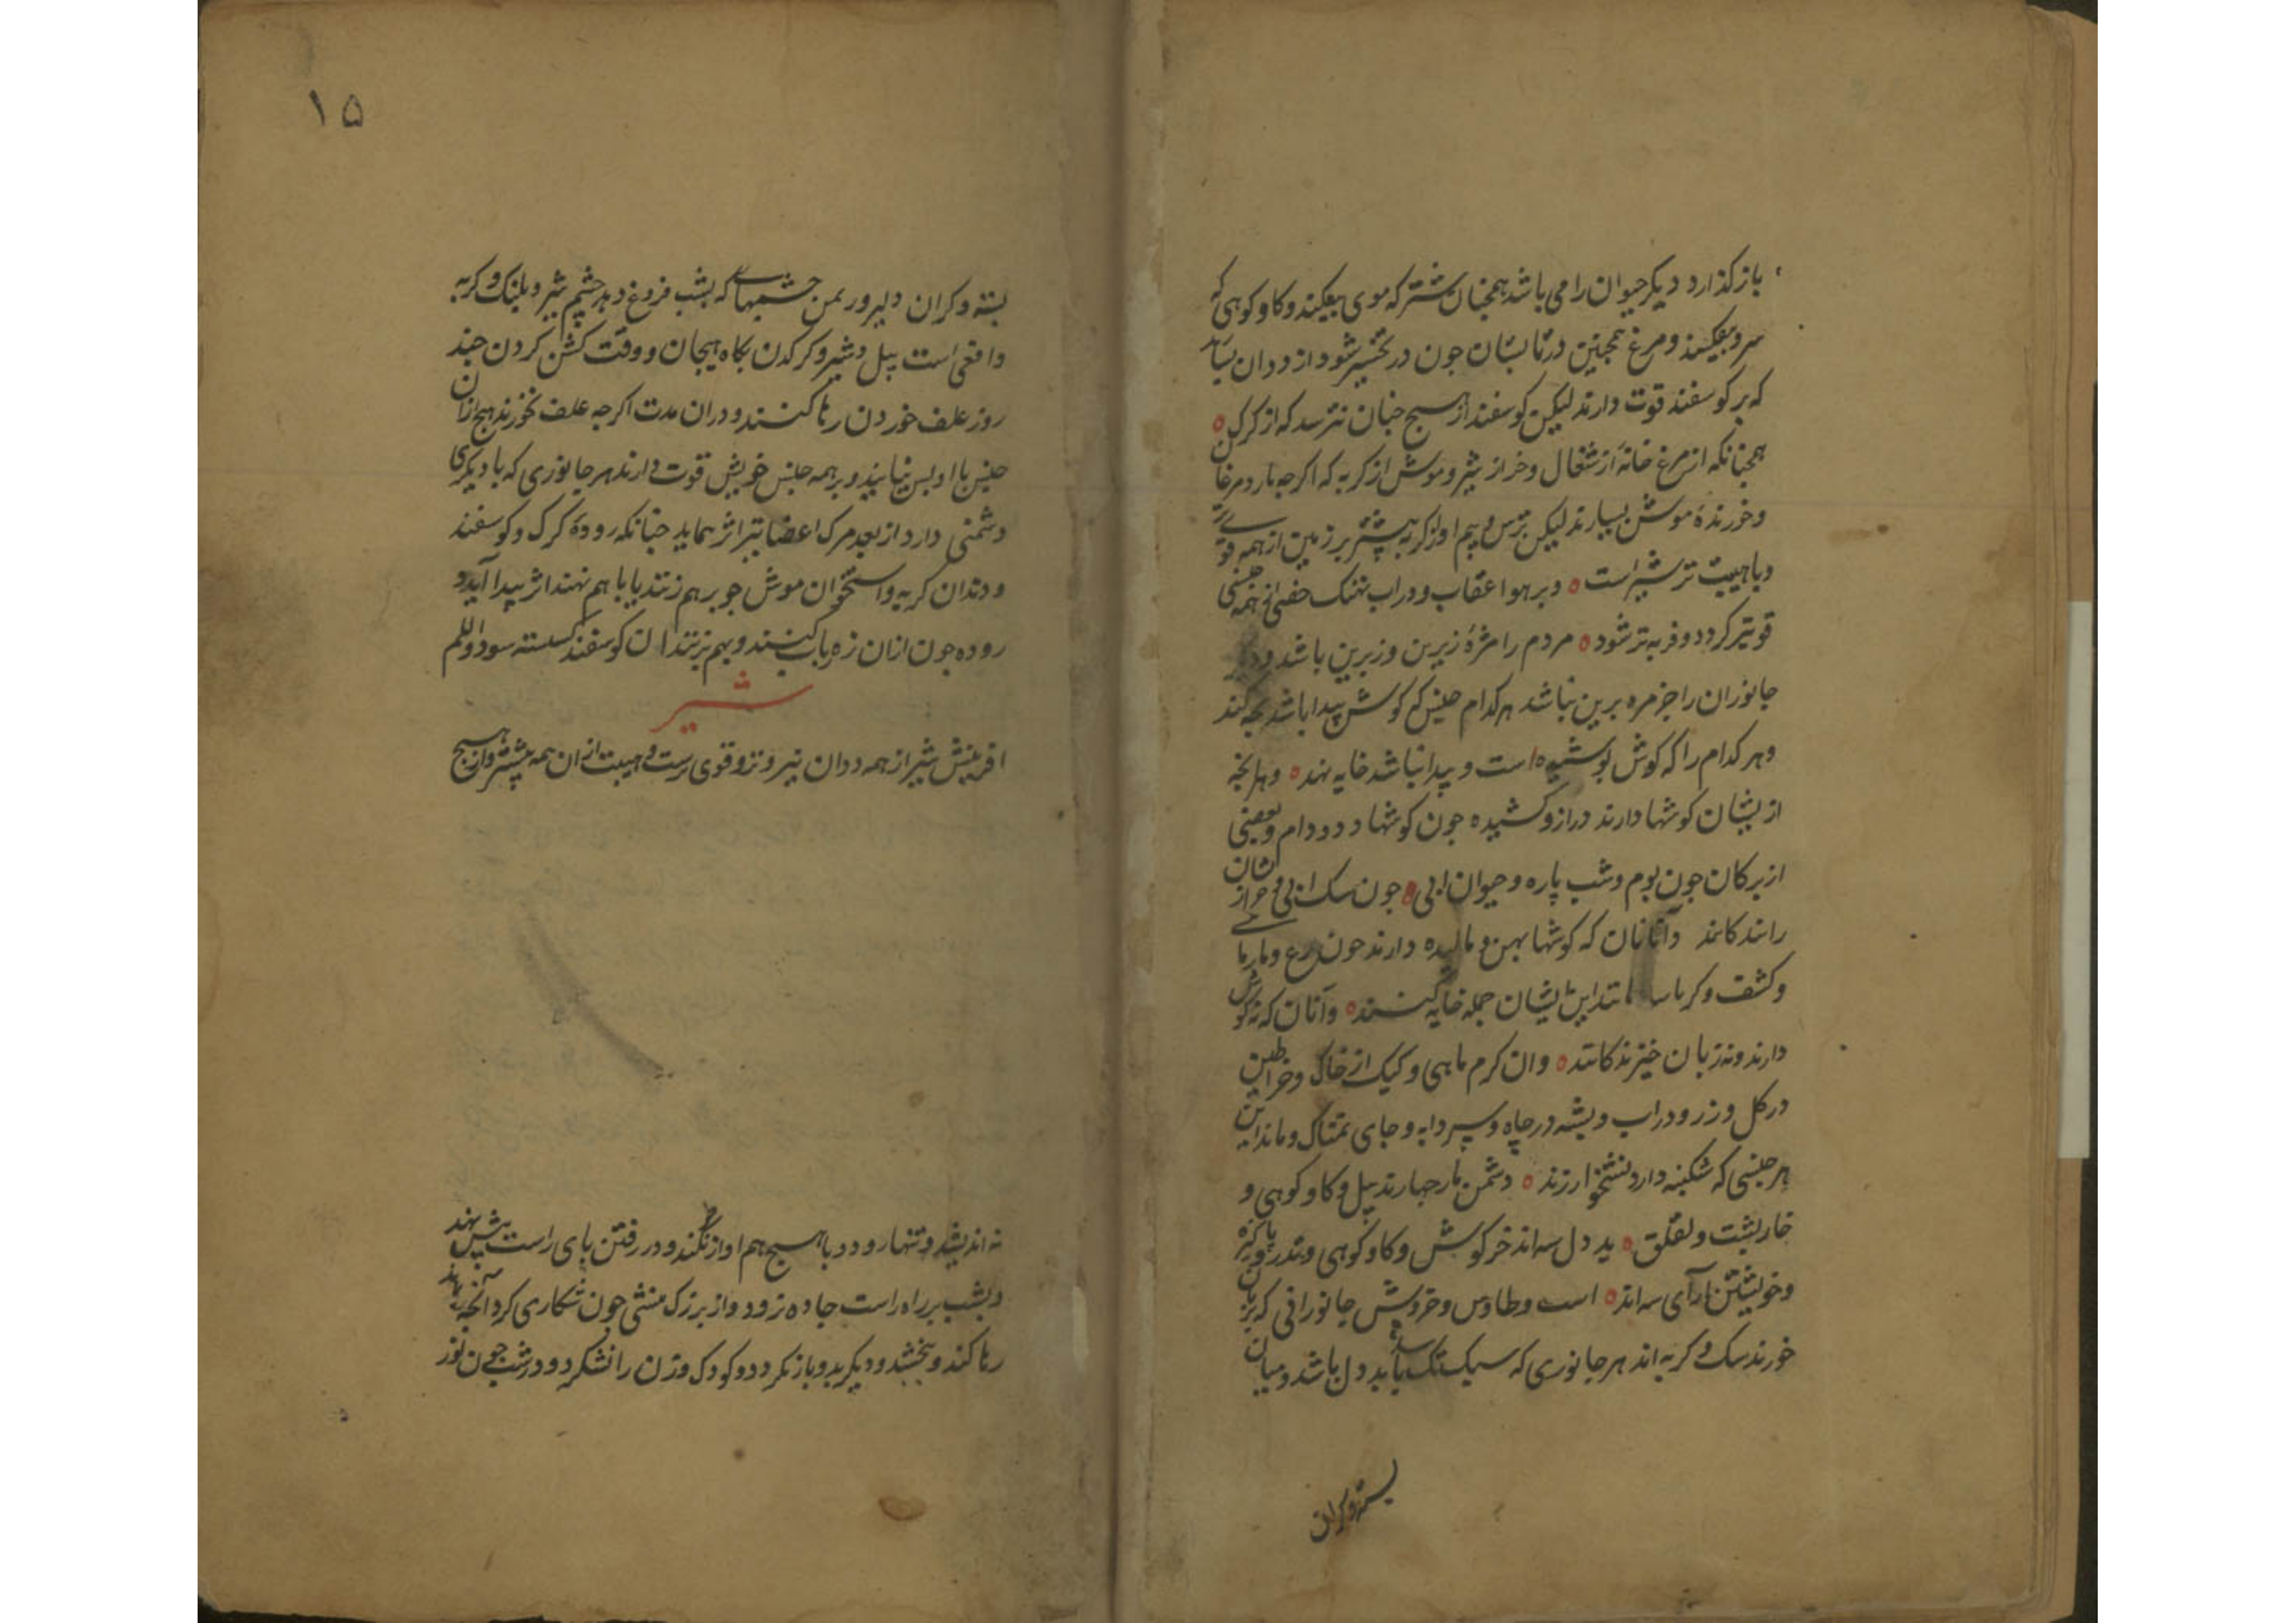 باز کذارد دیکر حیوان را می باشد همچنان شتر که موی بیفکند و کاو کوهی که
سرو بیفکند و مرغ همچنین در تابستان جون در تخسیر شود از ددان بسیار
که بر کوسفند قوت دارند لیکن کوسفند از هیچ جنان نترسد که از کرک
همچنانکه از مرغ خانه از شغال و خر از شیر و موش از کربه که اکرجه باز و مرغان
و خورندهٔ موش بسیارند لیکن ترس و بیم او از کربه بیشتر بر زمین از همه قوی تر
و باهیبت تر شیر است و بر هوا عقاب و در اب نهنک خفسی از همه جنسی
قویتر کردد و فربه تر شود مردم را مژهٔ زیرین و زبرین باشد و دیکر
جانوران را جز مژه برین نباشد هر کدام جنس که کوش پیدا باشد بجه کند
و هر کدام را که کوش پوشیده است و پیدا نباشد خایه نهد و هر انجه
از یشان کوشها دارند دراز و کشیده جون کوشها دد و دام و بعضی
از پرکان جون بوم و شب پاره و حیوان ابی جون سک ابی و خوازنشان
زانید کانند و آنانان که کوشها پهن و مالیده دارند جون مرغ و مار ما
و کشف و کرباسا مانند این ایشان جمله خایه کنند و آنان که نه کوش
دارند و نه زبان خیزند کانند وان کرم ماهی و کیک از خاک و خراطین
در کل و زرو در اب و پشه در جاه و سردابه و جای نمناک و مانند این
هر جنسی که شکنبه دارد نشخوار زند دشمن مار جهارند پیل و کاو کوهی و
خارپشت و لقلق بد دل سه اند خرکوش و کاو کوهی و تذرو پاکیزه
و خویشتن ارآی سه اند است و طاوس و خروش جانورانی که بزیان
خورند سک و کربه اند هر جانوری که سبک تک باید دل باشد و میان
بسته و کران
۱۵
بسته و کران دلیر و ریمن جشمهای که بشب فروغ دهد جشم شیر و پلنک و کربه
و افعی است پیل و شیر و کرکدن بکاه هیجان و وقت کشن کردن جند
روز علف خوردن رها کنند و دران مدت اکرجه علف نخورند هیج ازان
جنس با او بس نیایند و بر همه جنس خویش قوت دارند هر جانوری که با دیکری
دشمنی دارد از بعد مرک اعضا نیز اثر نماید جنانکه رودهٔ کرک و کوسفند
و دندان کربه و استخوان موش جو بر هم زنند یا با هم نهند اثر پیدا آید و
روده جون ازان زه رباب کنند و بهم بزنند ان کوسفند کسسته سود و اللم
شیر
افرینش شیر از همه ددان نیروتر و قوی ترست و هیبت ازان همه بیشتر و از هیج
نه اندیشد و تنها رود و با هیج هم اواز نکند و در رفتن بای راست پیش نهد
و بشب بر راه راست جاده نرود و از بزرک منشی جون شکاری کرد آنجه بماند
رها کند و ببخشد و دیکر بدو باز نکردد و کودک و زن را نشکرد و در شب جون نور